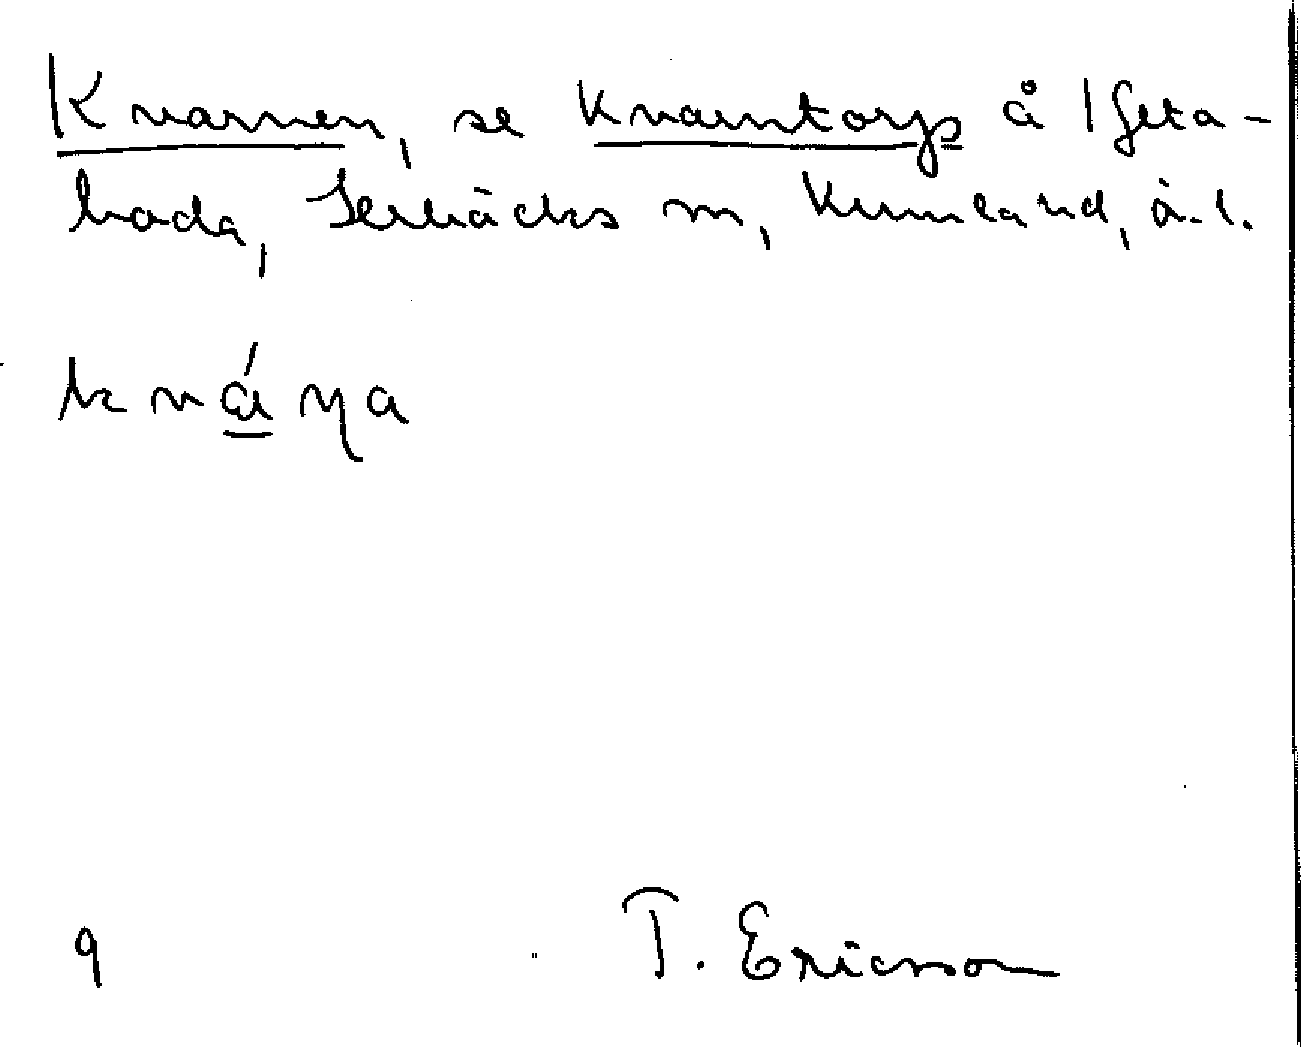 Kvarnen, se Kvarntorps å, Igeta-
boda, Lerbäcks sn, Kumla hd, ä. l.
kvá ŋa
9 T. Ericsson